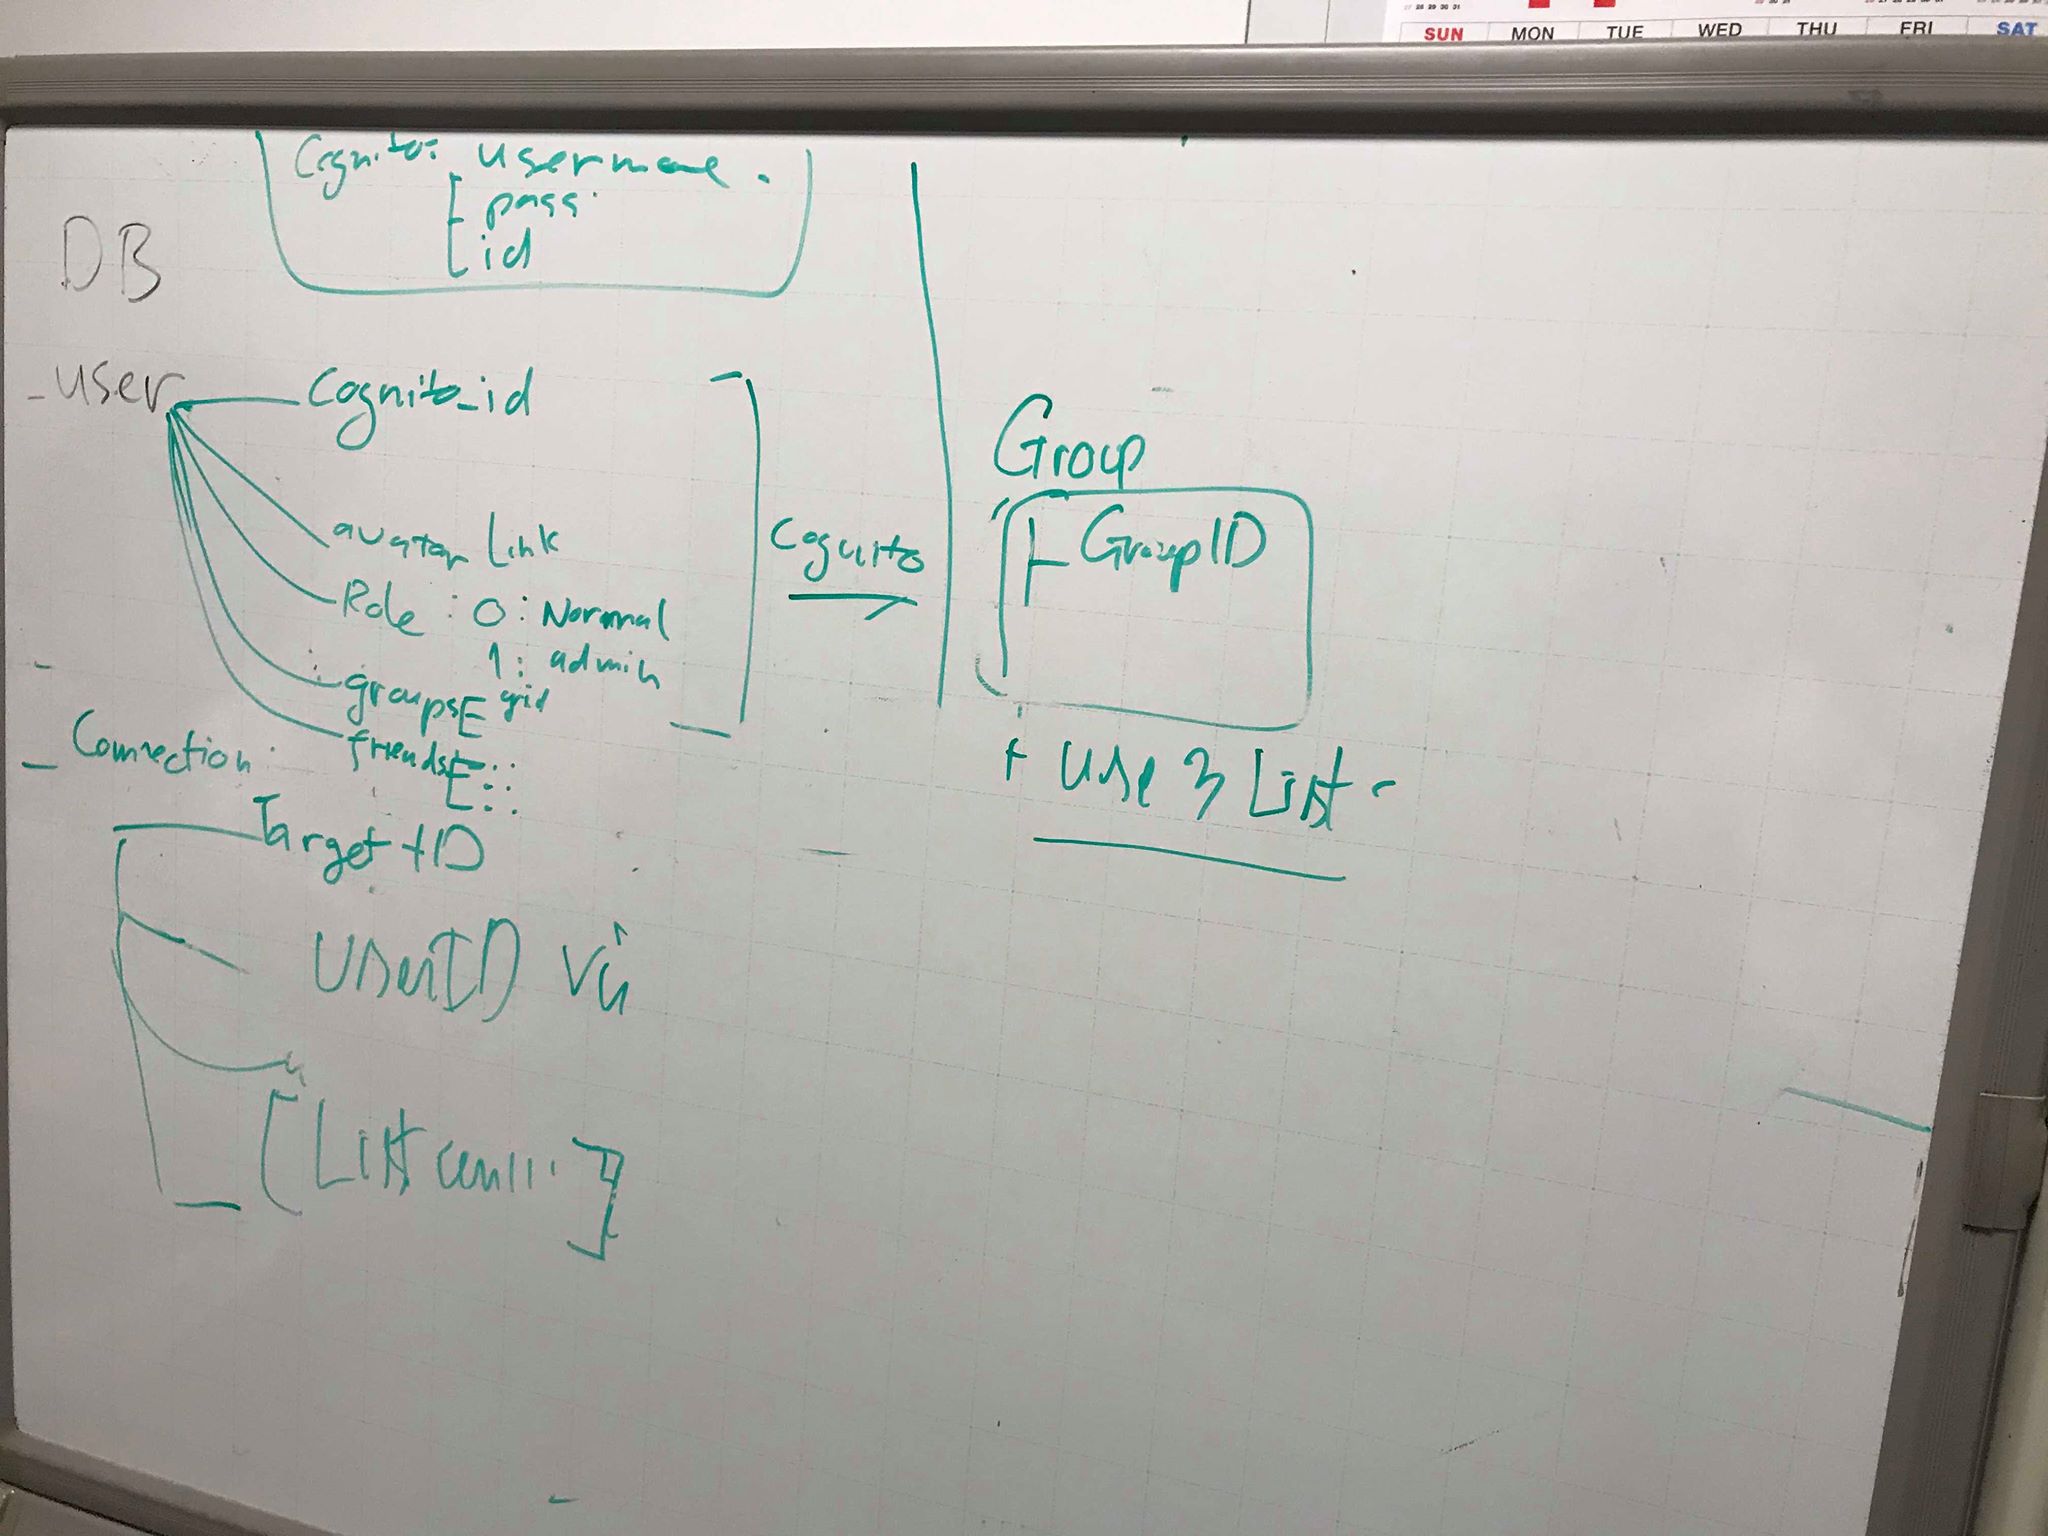 SUN MON TUE WED THU FRI SAT
Cognito: username.
pass
id
DB
- user
Cognito_id
avatar link
Role : 0 : Normal
1 : admin
groups grid
friends
Cognito
- Connection:
Target + ID
UserID
[List
Group
GroupID
+ List